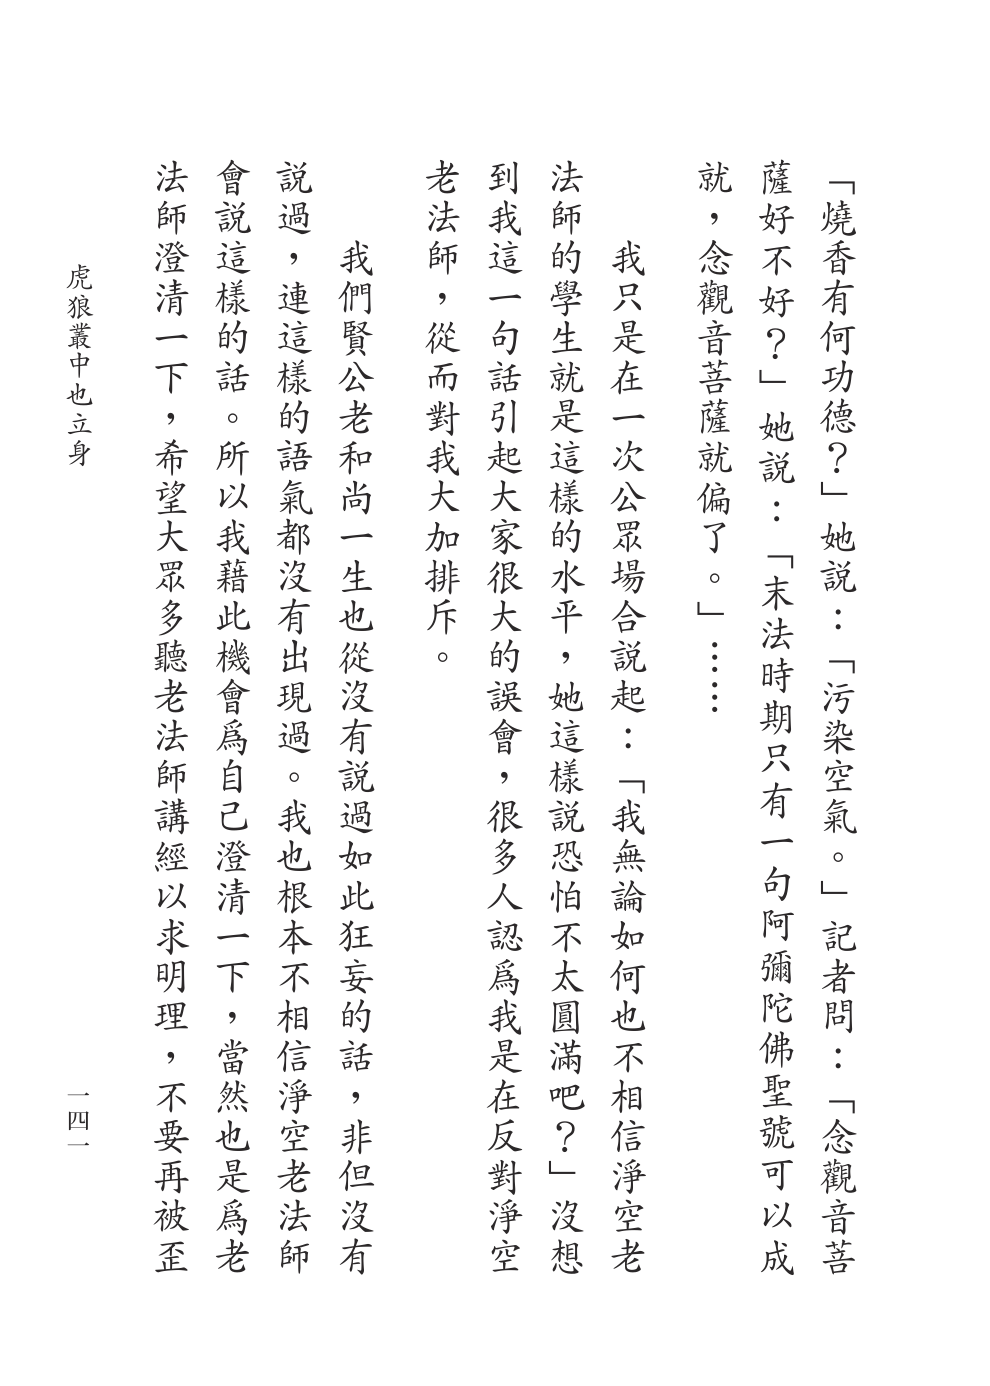 「燒香有何功德？」她說：「污染空氣。」記者問：「念觀音菩
薩好不好？」她說：「末法時期只有一句阿彌陀佛聖號可以成
就，念觀音菩薩就偏了。」……
我只是在一次公眾場合說起：「我無論如何也不相信淨空老
法師的學生就是這樣的水平，她這樣說恐怕不太圓滿吧？」沒想
到我這一句話引起大家很大的誤會，很多人認爲我是在反對淨空
老法師，從而對我大加排斥。
我們賢公老和尚一生也從沒有說過如此狂妄的話，非但沒有
說過，連這樣的語氣都沒有出現過。我也根本不相信淨空老法師
會說這樣的話。所以我藉此機會爲自己澄清一下，當然也是爲老
法師澄清一下，希望大眾多聽老法師講經以求明理，不要再被歪
虎狼叢中也立身
一四一